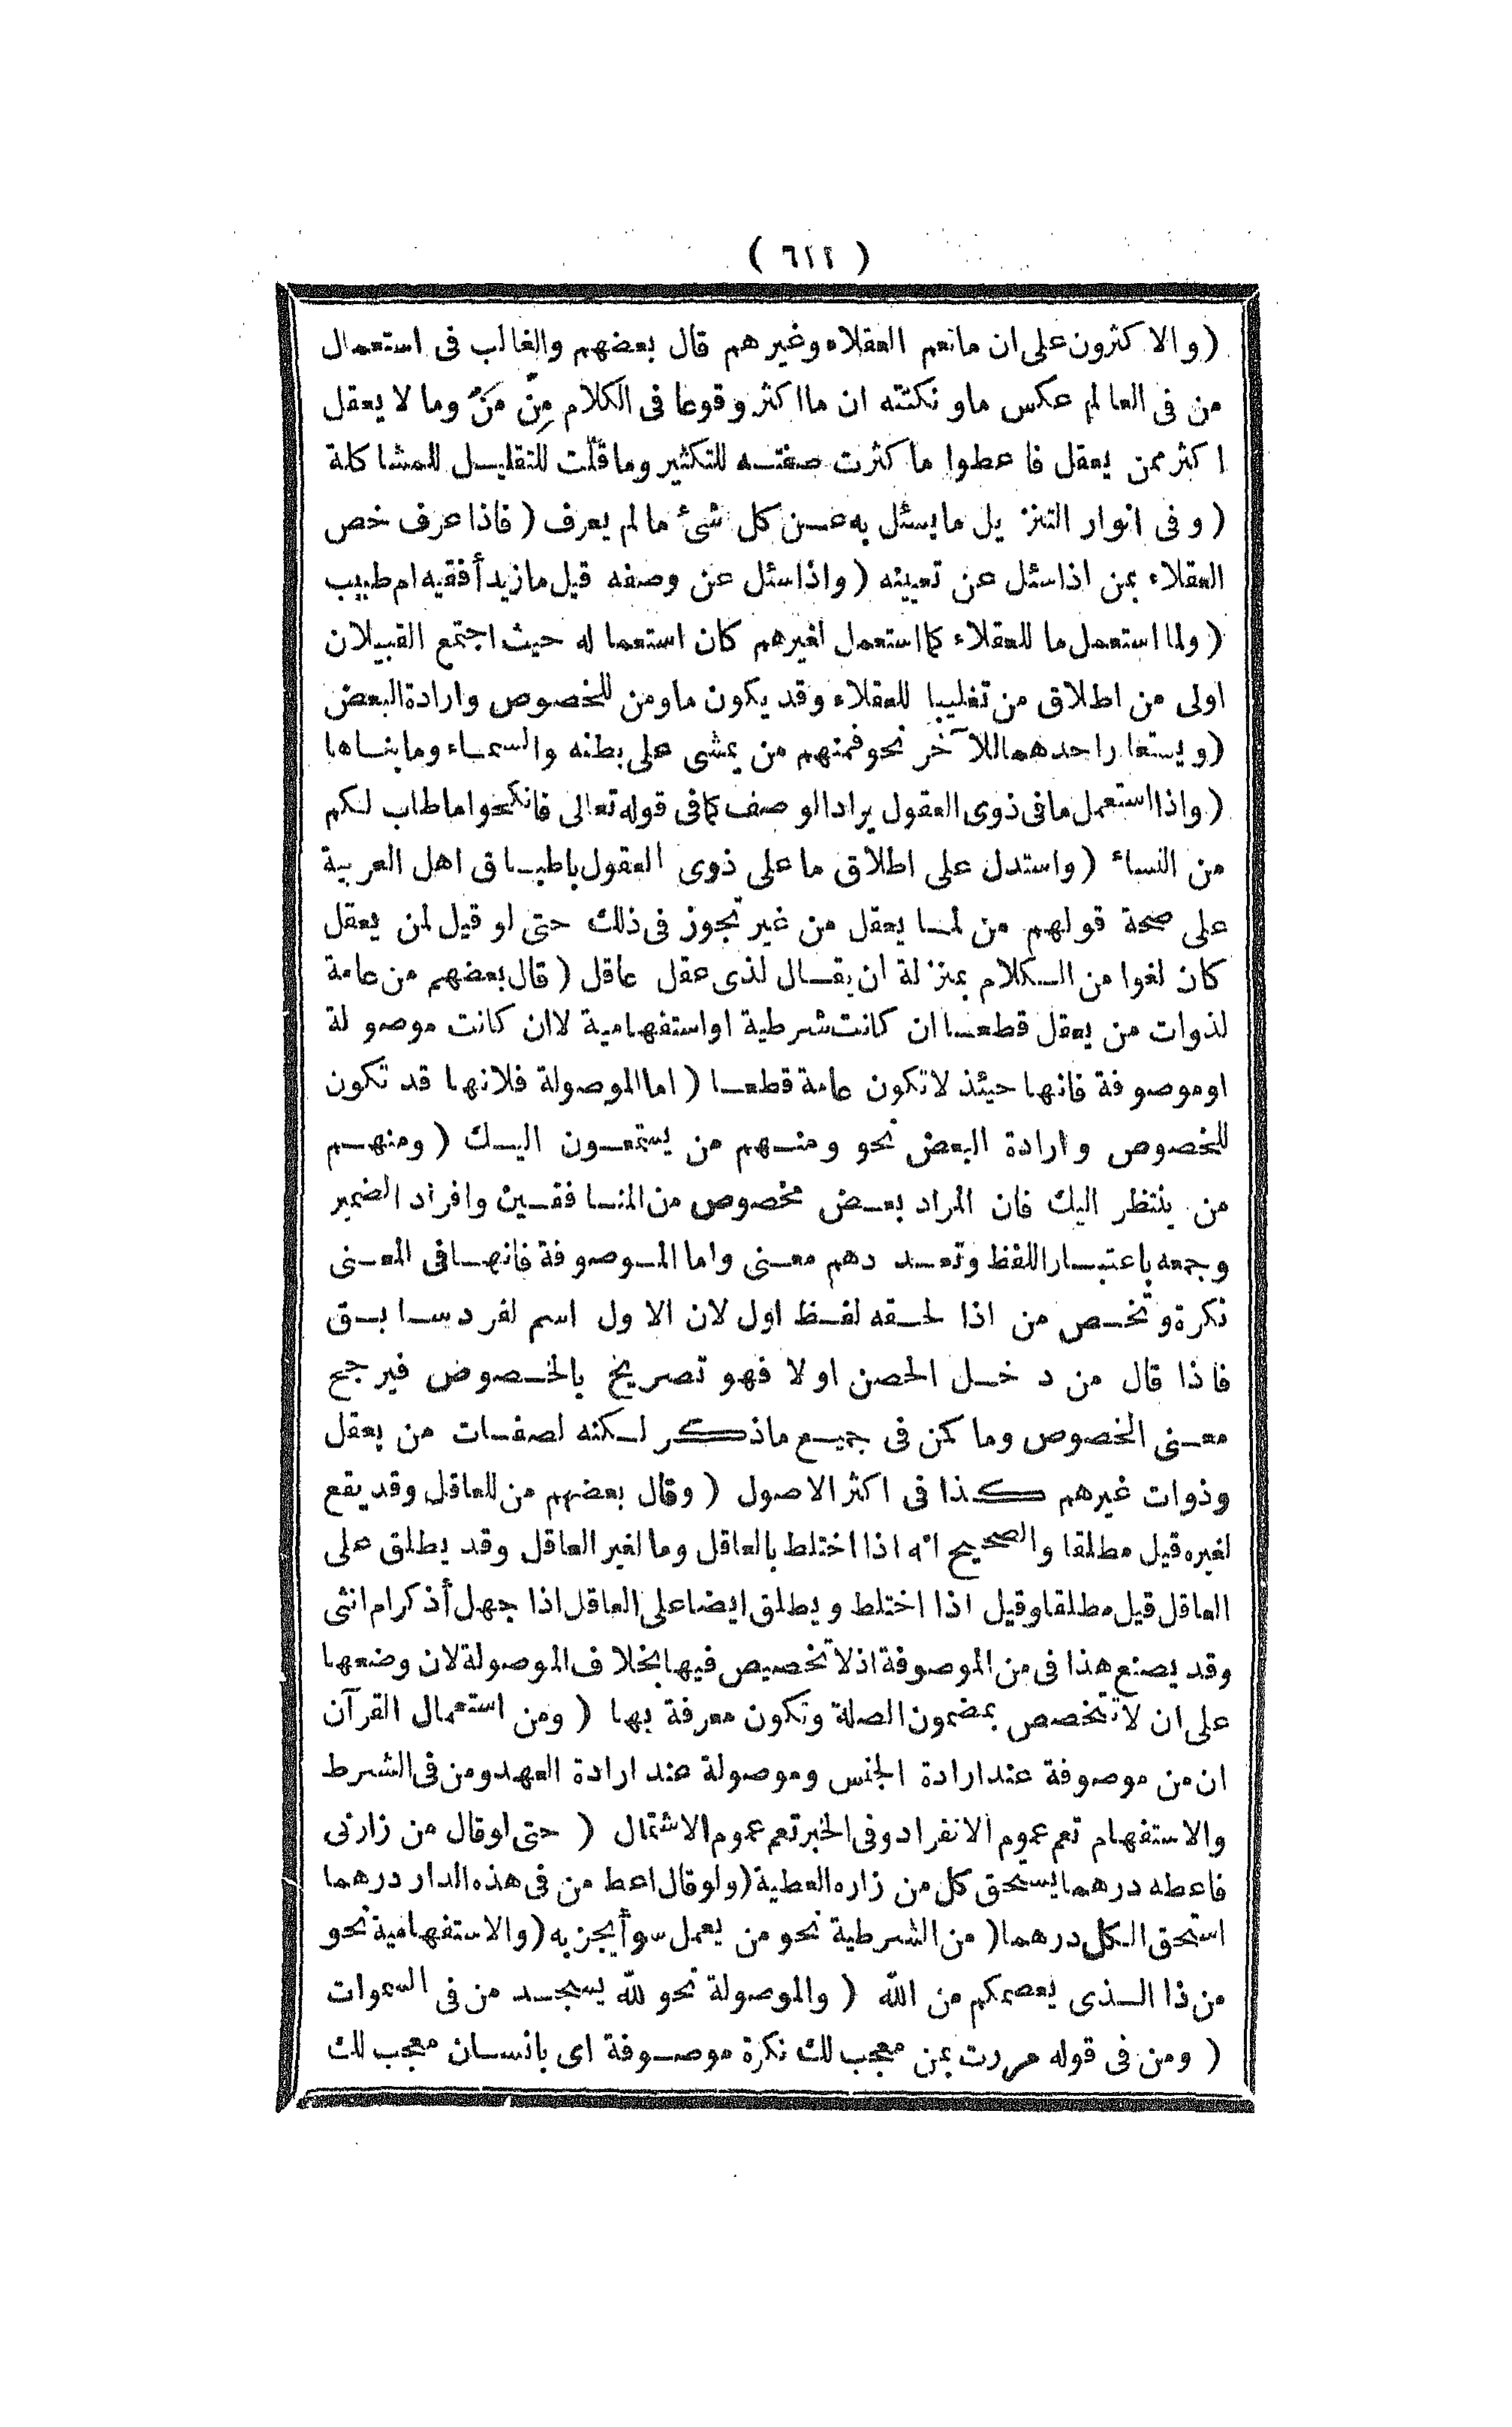 ( ٦١٢ )
( والا كثرون على ان ما تعم العقلاء وغيرهم قال بعضهم والغالب فى استعمال
من فى العالم عكس ما و نكتته ان ما اكثر وقوعا فى الكلام مِنّ مَنْ وما لا يعقل
اكثر ممن يعقل فاعطوا ما كثرت صفته للتكثير وما قلّت للتقليل للمشاكلة
( وفى انوار التنزيل ما يسئل به عن كل شئ ما لم يعرف ( فاذا عرف خص
العقلاء بمن اذا سئل عن تعيينه ( واذا سئل عن وصفه قيل ما زيد أفقيه ام طبيب
( ولما استعمل ما للعقلاء كما استعمل لغيرهم كان استعماله حيث اجتمع القبيلان
اولى من اطلاق من تغليبا للعقلاء وقد يكون ما ومن للخصوص وارادة البعض
( ويستعار احدهما للآخر نحو فمنهم من يمشى على بطنه والسماء وما بناها
( واذا استعمل ما فى ذوى العقول يراد الوصف كما فى قوله تعالى فانكحوا ما طاب لكم
من النساء ( واستدل على اطلاق ما على ذوى العقول باطباق اهل العربية
على صحة قولهم من لما يعقل من غير تجوز فى ذلك حتى لو قيل لمن يعقل
كان لغوا من الكلام بمنزلة ان يقال لذى عقل عاقل ( قال بعضهم من عامة
لذوات من يعقل قطعا ان كانت شرطية او استفهامية لا ان كانت موصولة
او موصوفة فانها حيئذ لا تكون عامة قطعا ( اما الموصولة فلانها قد تكون
للخصوص وارادة البعض نحو ومنهم من يستمعون اليك ( ومنهم
من ينتظر اليك فان المراد بعض مخصوص من المنافقين وافراد الضمير
وجمعه باعتبار اللفظ وتعددهم معنى واما الموصوفة فانها فى المعنى
نكرة وتخص من اذا لحقه لفظ اول لان الاول اسم لفرد سابق
فاذا قال من دخل الحصن اولا فهو تصريح بالخصوص فيرجح
معنى الخصوص وما كمن فى جميع ما ذكر لكنه لصفات من يعقل
وذوات غيرهم كذا فى اكثر الاصول ( وقال بعضهم من للعاقل وقد يقع
لغيره قيل مطلقا والصحيح انه اذا اختلط بالعاقل وما لغير العاقل وقد يطلق على
العاقل قيل مطلقا وقيل اذا اختلط ويطلق ايضا على العاقل اذا جهل أذكر ام انثى
وقد يصنع هذا فى من الموصوفة اذ لا تخصيص فيها بخلاف الموصولة لان وضعها
على ان لا تتخصص بمضمون الصلة وتكون معرفة بها ( ومن استعمال القرآن
ان من موصوفة عند ارادة الجنس وموصولة عند ارادة العهد ومن فى الشرط
والاستفهام تعم عموم الانفراد وفى الخبر تعم عموم الاشتمال ( حتى لو قال من زارنى
فاعطه درهما يستحق كل من زاره العطية ( ولو قال اعط من فى هذه الدار درهما
استحق الكل درهما ( من الشرطية نحو من يعمل سوأ يجز به ( والاستفهامية نحو
من ذا الذى يعصمكم من الله ( والموصولة نحو لله يسجد من فى السموات
( ومن فى قوله مررت بمن معجب لك نكرة موصوفة اى بانسان معجب لك